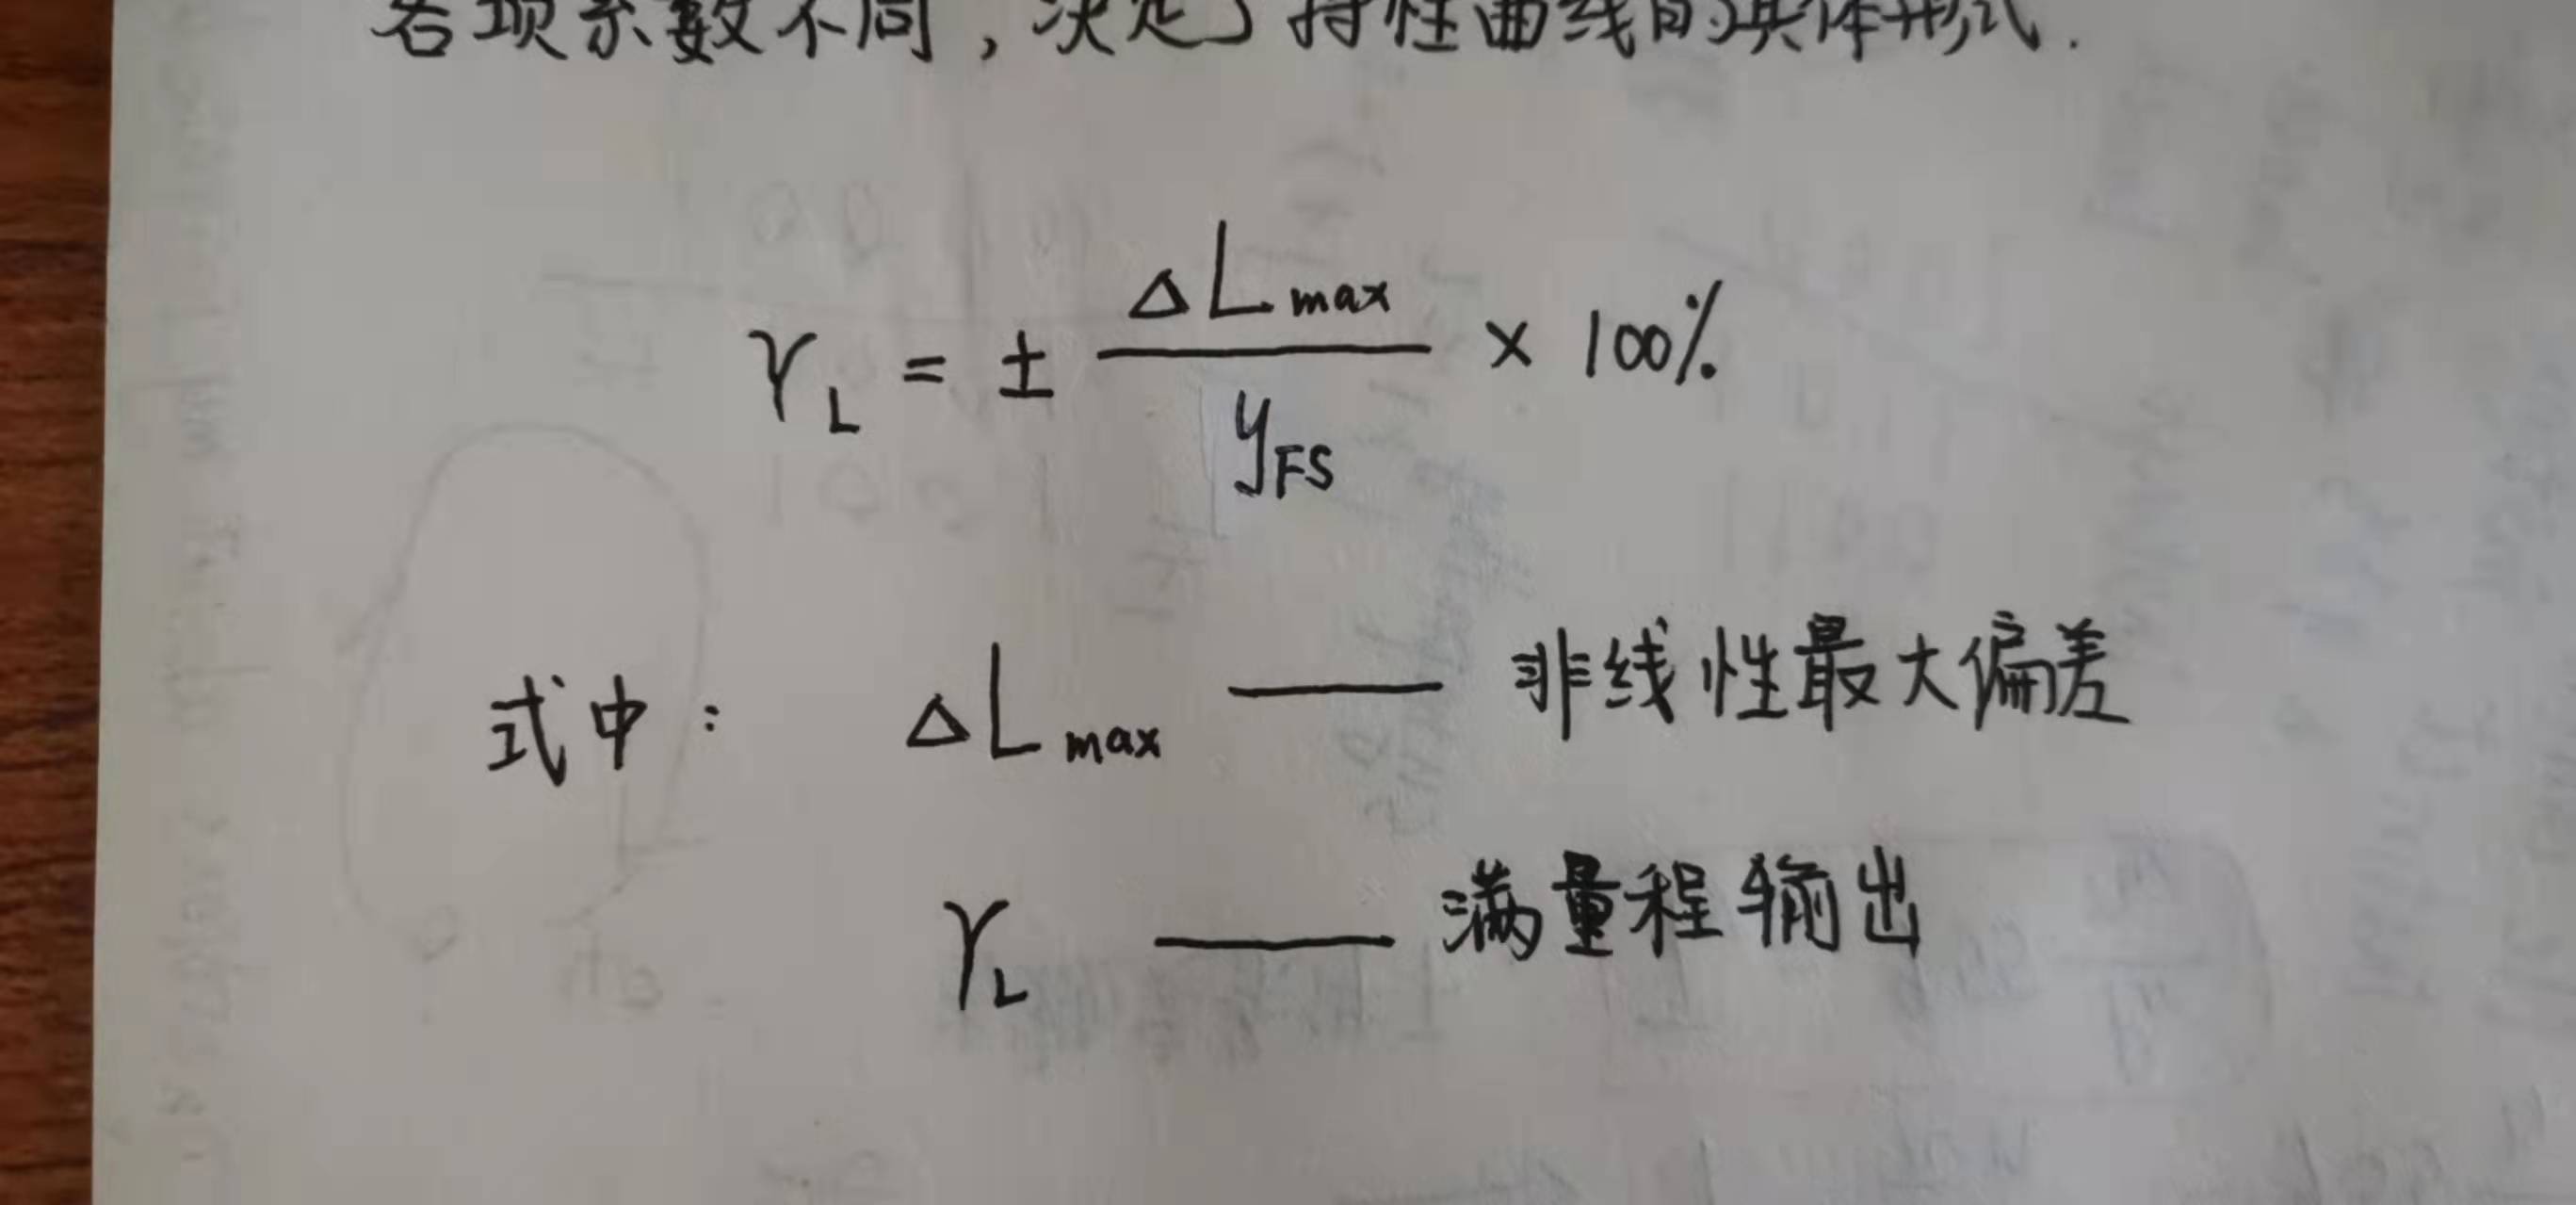 各项系数不同，决定了特性曲线的具体形式.
γL = ± ΔLmax / yFS × 100%
式中： ΔLmax —— 非线性最大偏差
γL —— 满量程输出